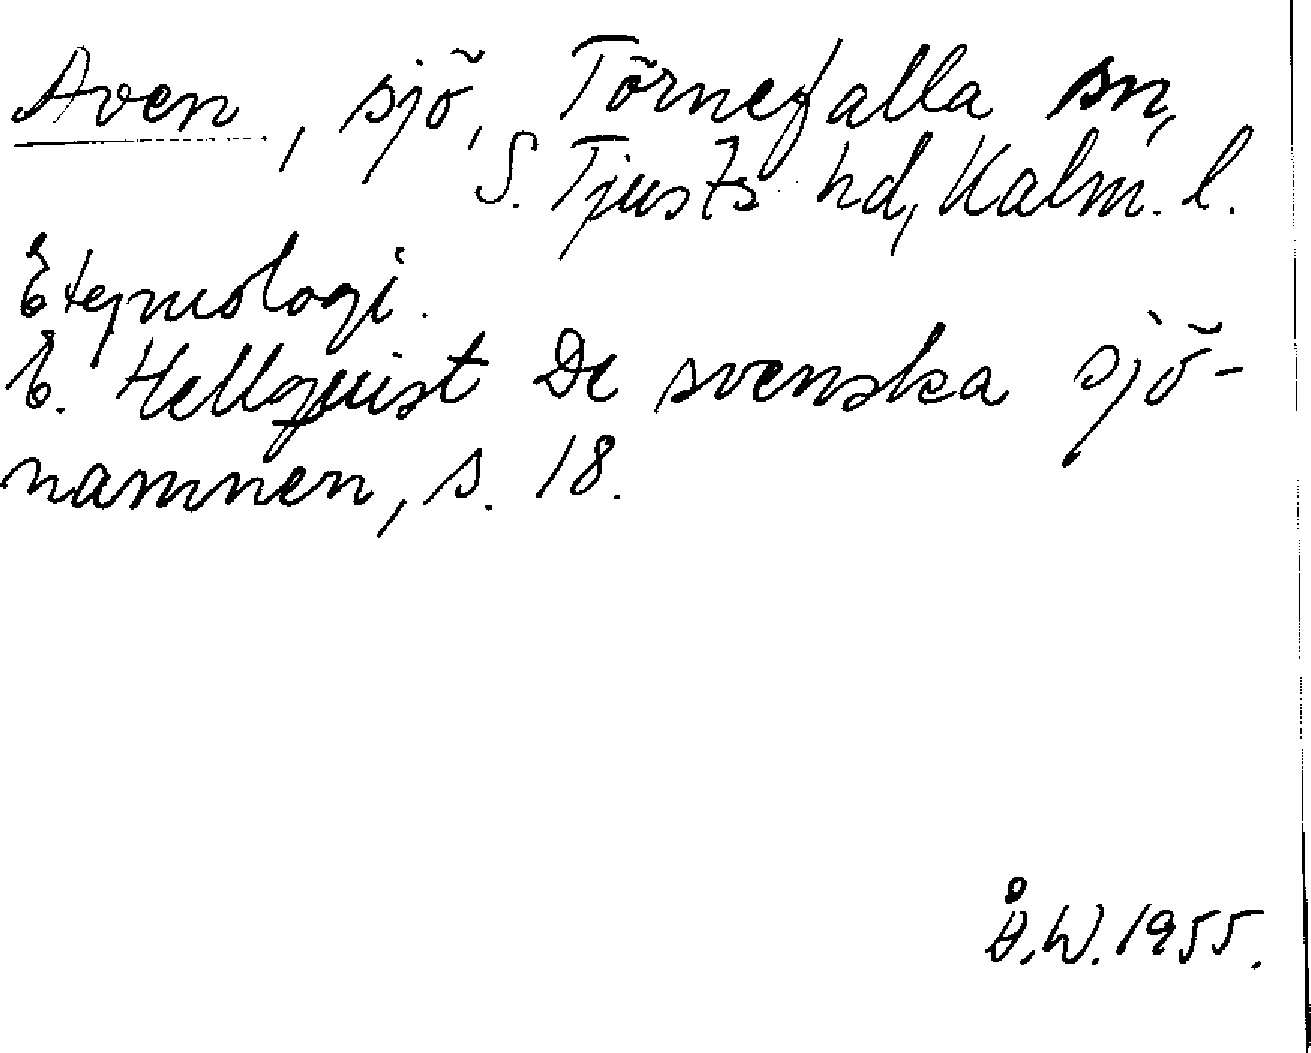 Aven, sjö, Törnefalla sn,
S. Tjusts hd, Kalm. l.
Etymologi.
E. Hellquist De svenska sjö-
namnen, s. 18.
Å.W. 1955.